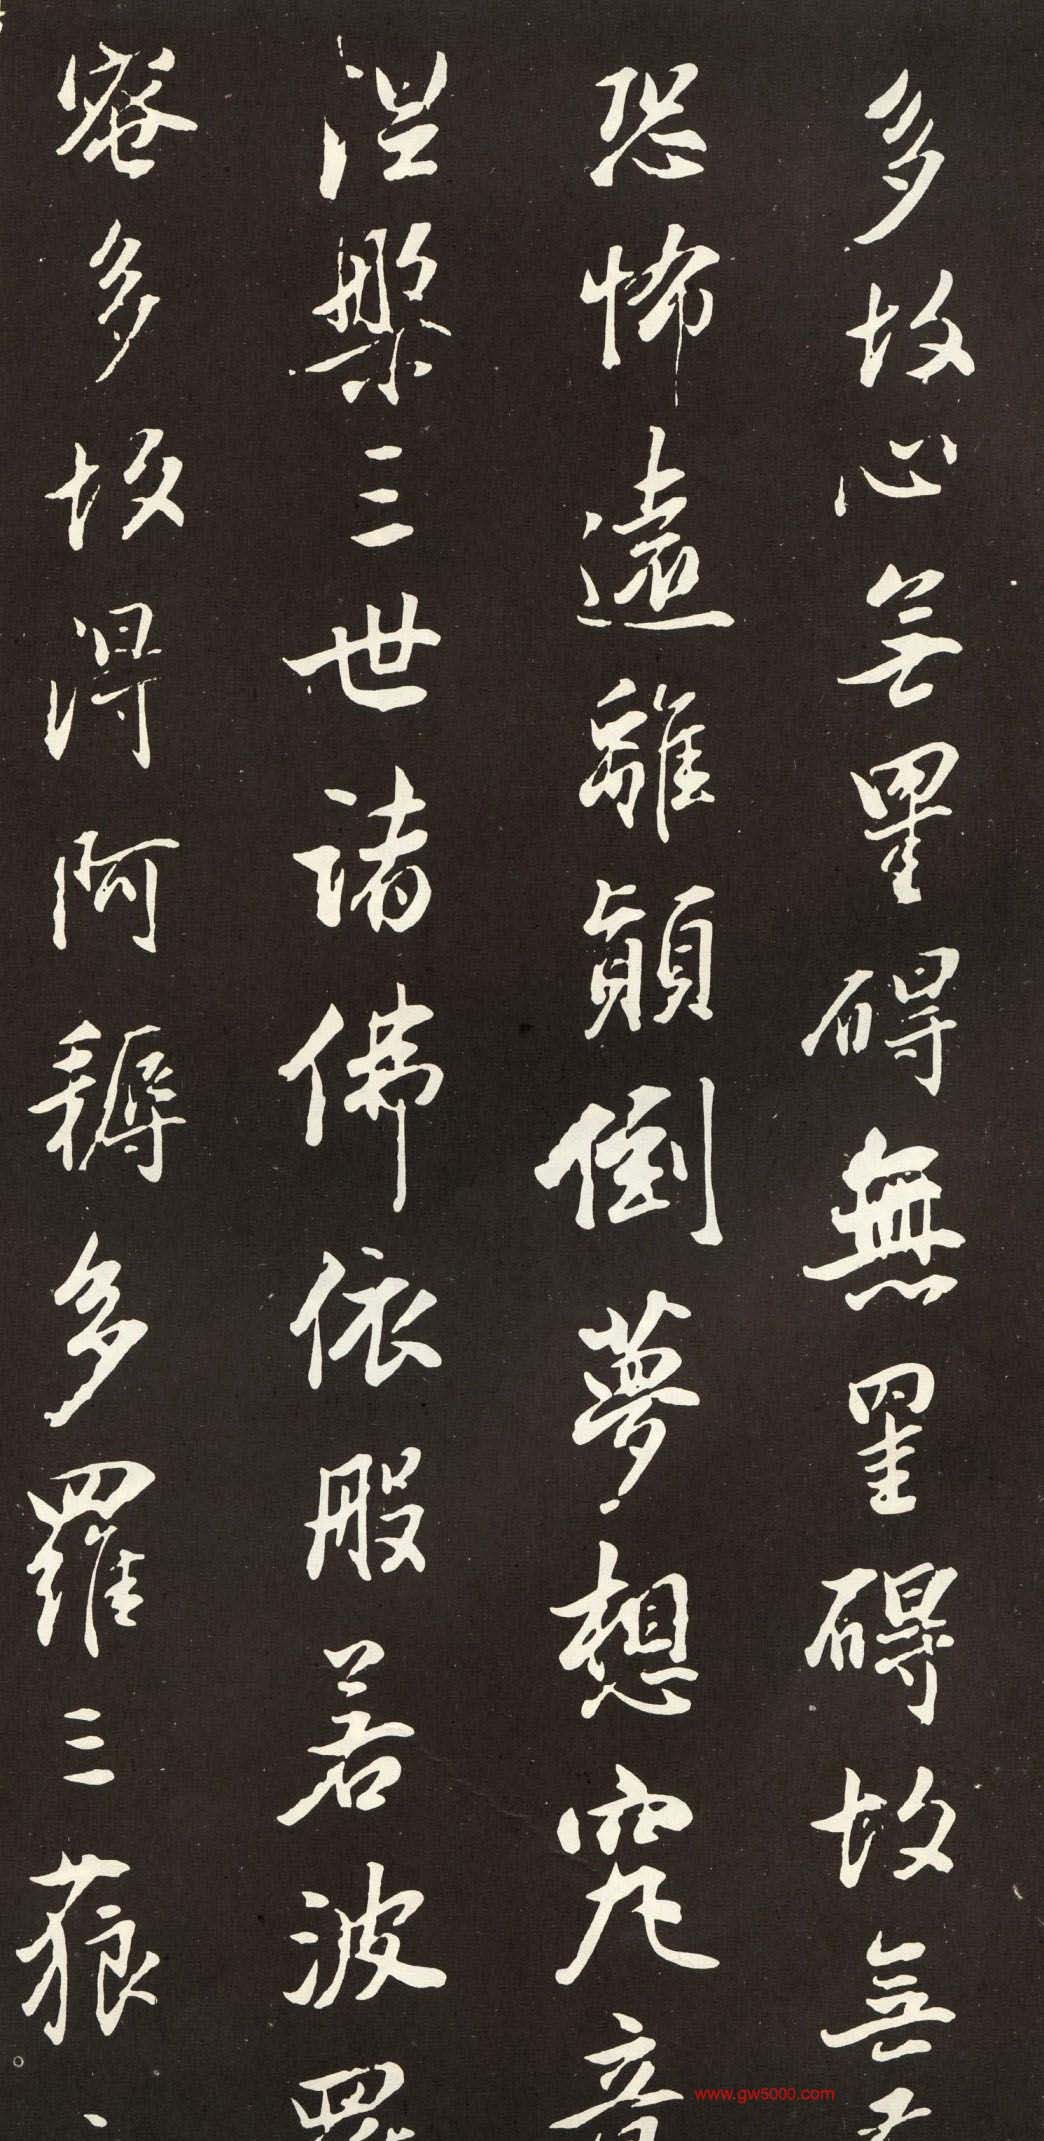 多故心無罣碍無罣碍故無有
恐怖遠離顛倒夢想究竟
涅槃三世諸佛依般若波羅
蜜多故得阿耨多羅三藐三
www.gw5000.com